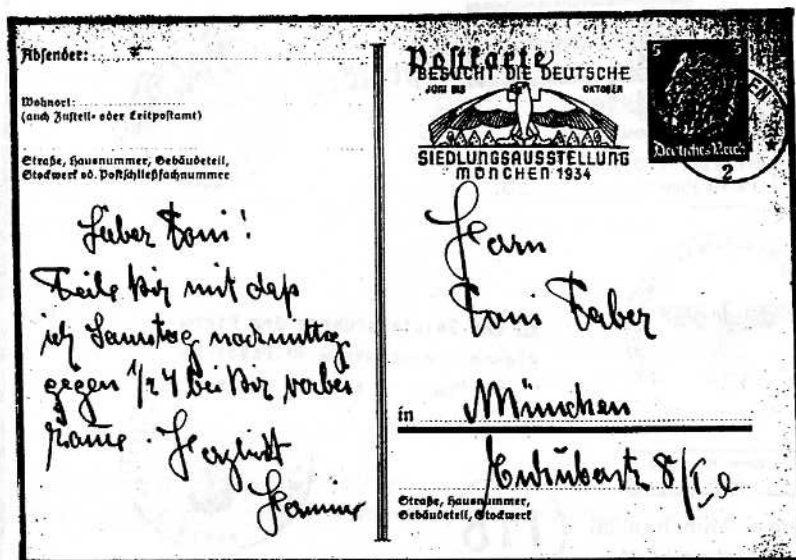 Absender:
Wohnort:
(auch Zustell- oder Leitpostamt)
Straße, Hausnummer, Gebäudeteil,
Stockwerk od. Postschließfachnummer
Lieber Toni!
Teile Dir mit daß
ich Samstag nachmittag
gegen 1/2 4 bei Dir vorbei
komme. Herzlichst
Postkarte
BESUCHT DIE DEUTSCHE
JUNI BIS OKTOBER
SIEDLUNGSAUSSTELLUNG
MÜNCHEN 1934
5 5
Deutsches Reich
2
Herrn
Toni
in München
8/I
Straße, Hausnummer,
Gebäudeteil, Stockwerk